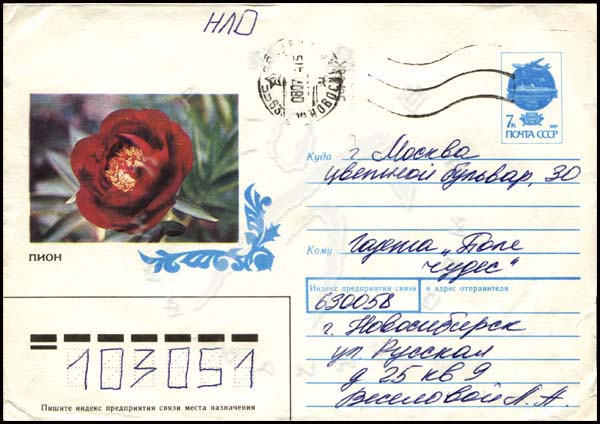 НЛО
7к
ПОЧТА СССР
Куда г Москва
цветной бульвар, 30
ПИОН
Кому Газета „Поле
чудес"
Индекс предприятия связи и адрес отправителя
630058
г. Новосибирск
ул. Русская
д 25 кв 9
Веселовой Л. А.
103051
Пишите индекс предприятия связи места назначения